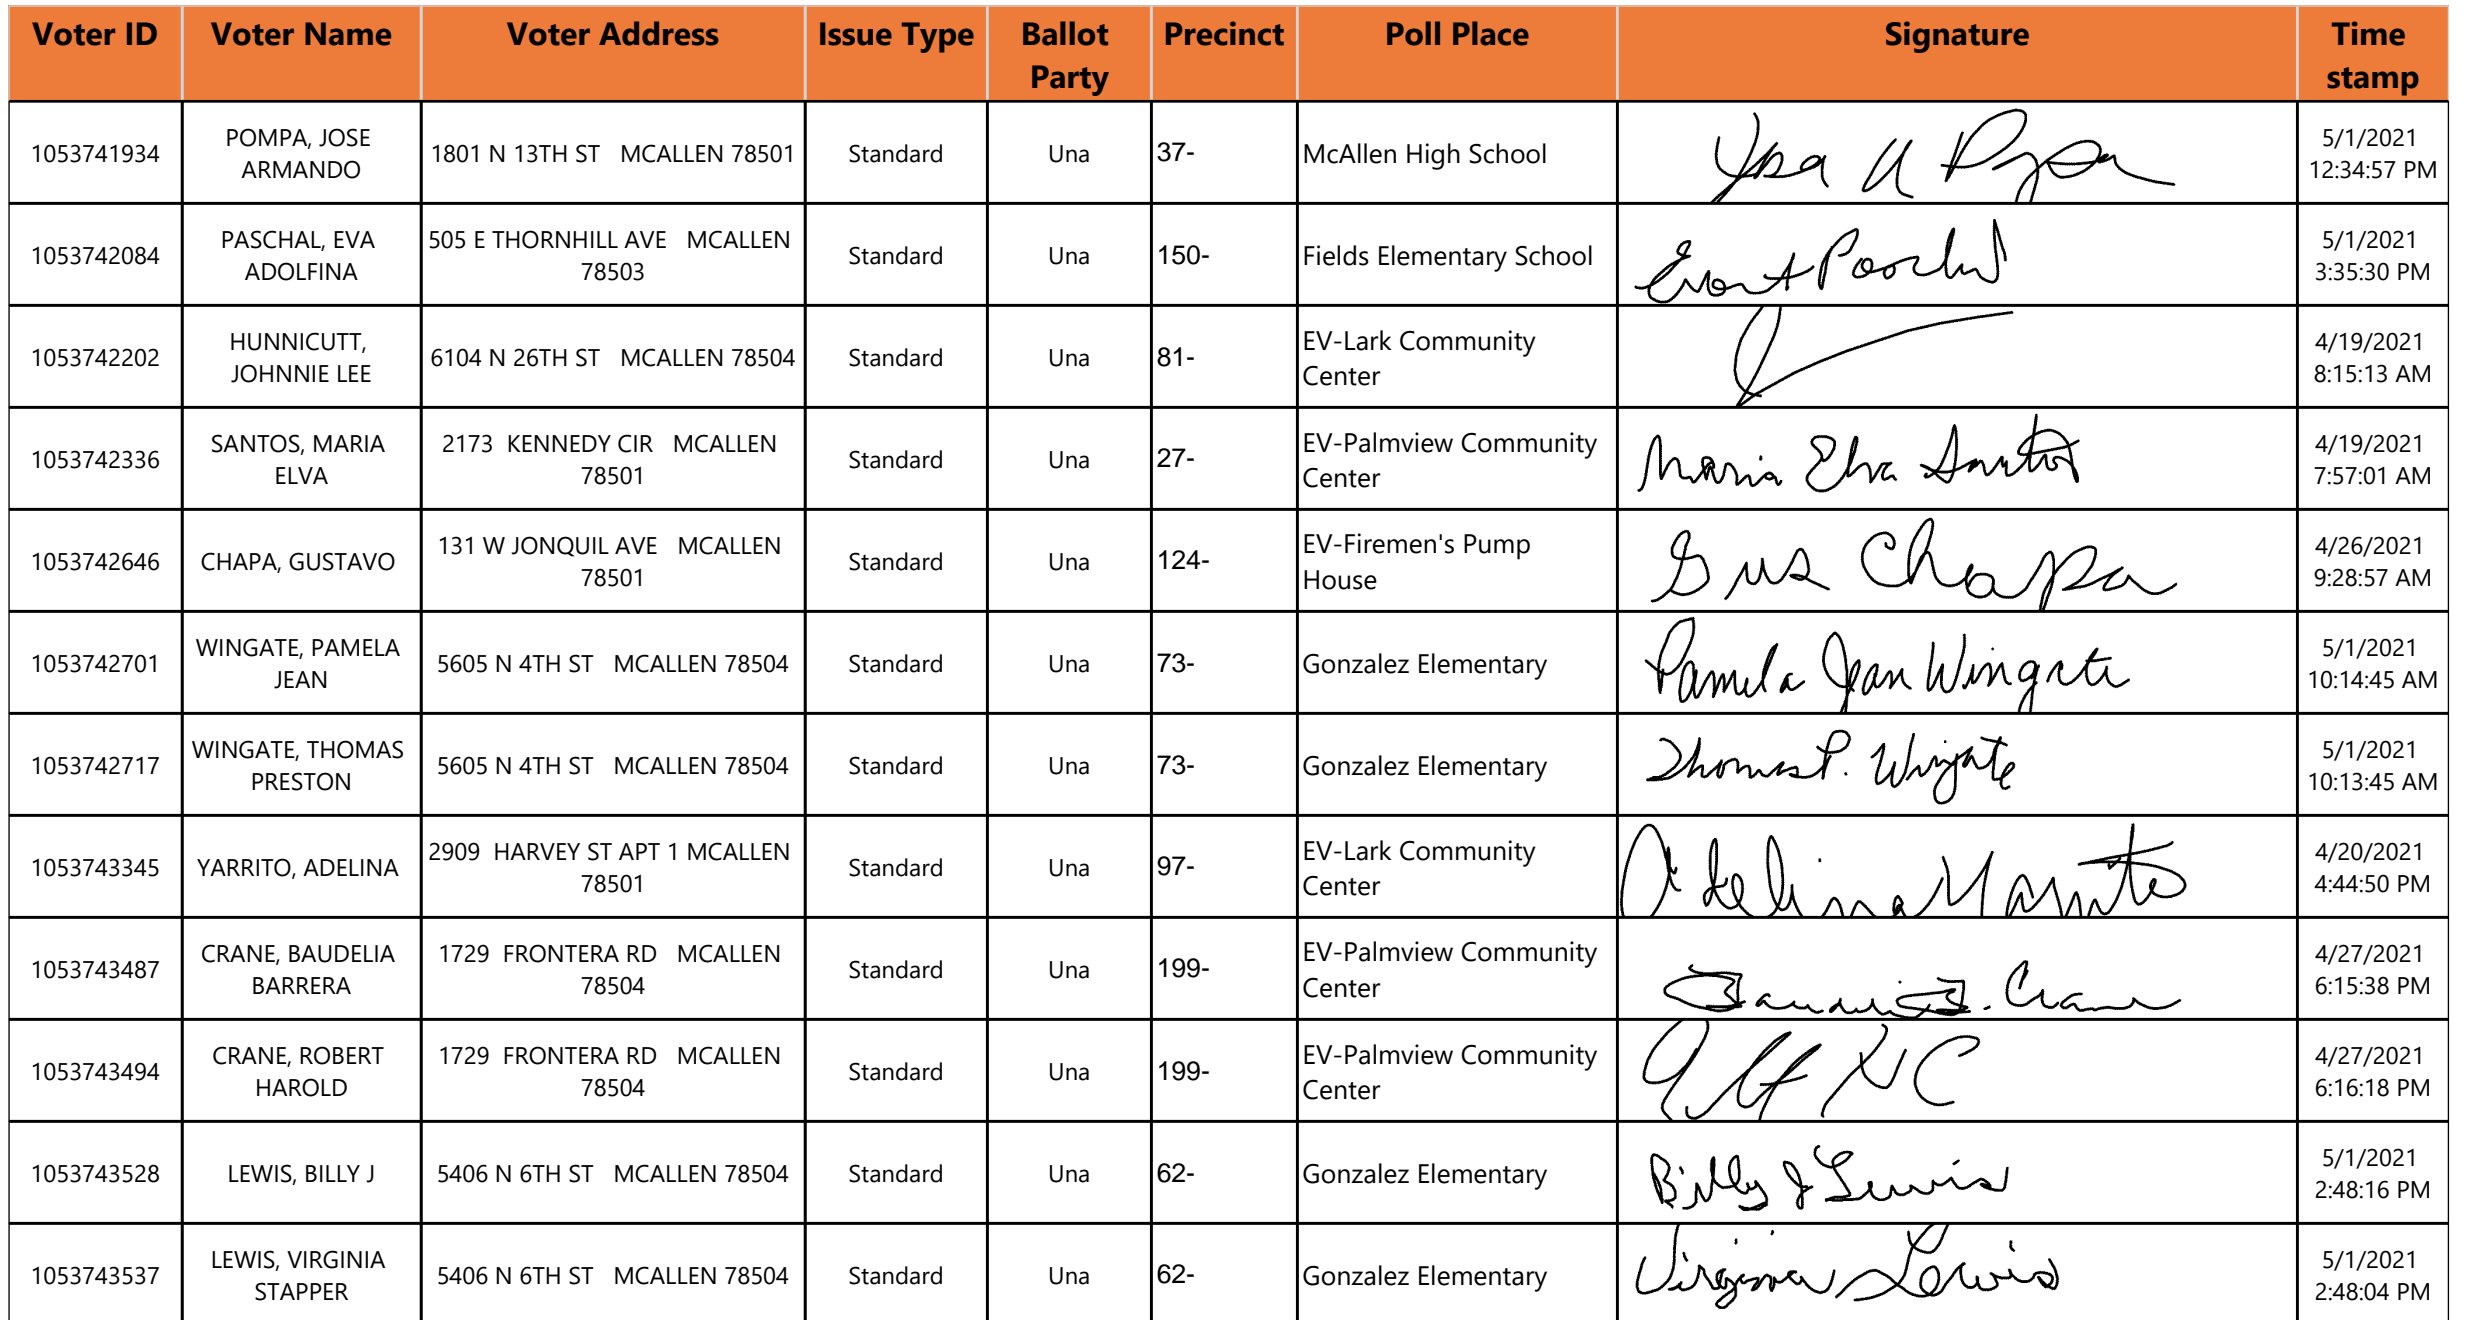 Voter ID Voter Name Voter Address Issue Type Ballot Party Precinct Poll Place Signature Time stamp
1053741934 POMPA, JOSE ARMANDO 1801 N 13TH ST MCALLEN 78501 Standard Una 37- McAllen High School 5/1/2021 12:34:57 PM
1053742084 PASCHAL, EVA ADOLFINA 505 E THORNHILL AVE MCALLEN 78503 Standard Una 150- Fields Elementary School 5/1/2021 3:35:30 PM
1053742202 HUNNICUTT, JOHNNIE LEE 6104 N 26TH ST MCALLEN 78504 Standard Una 81- EV-Lark Community Center 4/19/2021 8:15:13 AM
1053742336 SANTOS, MARIA ELVA 2173 KENNEDY CIR MCALLEN 78501 Standard Una 27- EV-Palmview Community Center Maria Elva Santos 4/19/2021 7:57:01 AM
1053742646 CHAPA, GUSTAVO 131 W JONQUIL AVE MCALLEN 78501 Standard Una 124- EV-Firemen's Pump House Gus Chapa 4/26/2021 9:28:57 AM
1053742701 WINGATE, PAMELA JEAN 5605 N 4TH ST MCALLEN 78504 Standard Una 73- Gonzalez Elementary Pamela Jean Wingate 5/1/2021 10:14:45 AM
1053742717 WINGATE, THOMAS PRESTON 5605 N 4TH ST MCALLEN 78504 Standard Una 73- Gonzalez Elementary Thomas P. Wingate 5/1/2021 10:13:45 AM
1053743345 YARRITO, ADELINA 2909 HARVEY ST APT 1 MCALLEN 78501 Standard Una 97- EV-Lark Community Center Adelina Yarrito 4/20/2021 4:44:50 PM
1053743487 CRANE, BAUDELIA BARRERA 1729 FRONTERA RD MCALLEN 78504 Standard Una 199- EV-Palmview Community Center B. Crane 4/27/2021 6:15:38 PM
1053743494 CRANE, ROBERT HAROLD 1729 FRONTERA RD MCALLEN 78504 Standard Una 199- EV-Palmview Community Center 4/27/2021 6:16:18 PM
1053743528 LEWIS, BILLY J 5406 N 6TH ST MCALLEN 78504 Standard Una 62- Gonzalez Elementary Billy J Lewis 5/1/2021 2:48:16 PM
1053743537 LEWIS, VIRGINIA STAPPER 5406 N 6TH ST MCALLEN 78504 Standard Una 62- Gonzalez Elementary Virginia Lewis 5/1/2021 2:48:04 PM